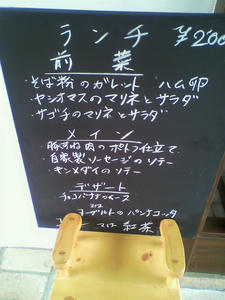 ランチ ¥200
前菜
・そば粉のガレット ハム卵
・ヤシオマスのマリネとサラダ
・サゴチのマリネとサラダ
メイン
・豚すね肉のポトフ仕立て
・自家製ソーセージのソテー
・キンメダイのソテー
デザート
チョコバナナのムース
or
ヨーグルトのパンナコッタ
or 紅茶